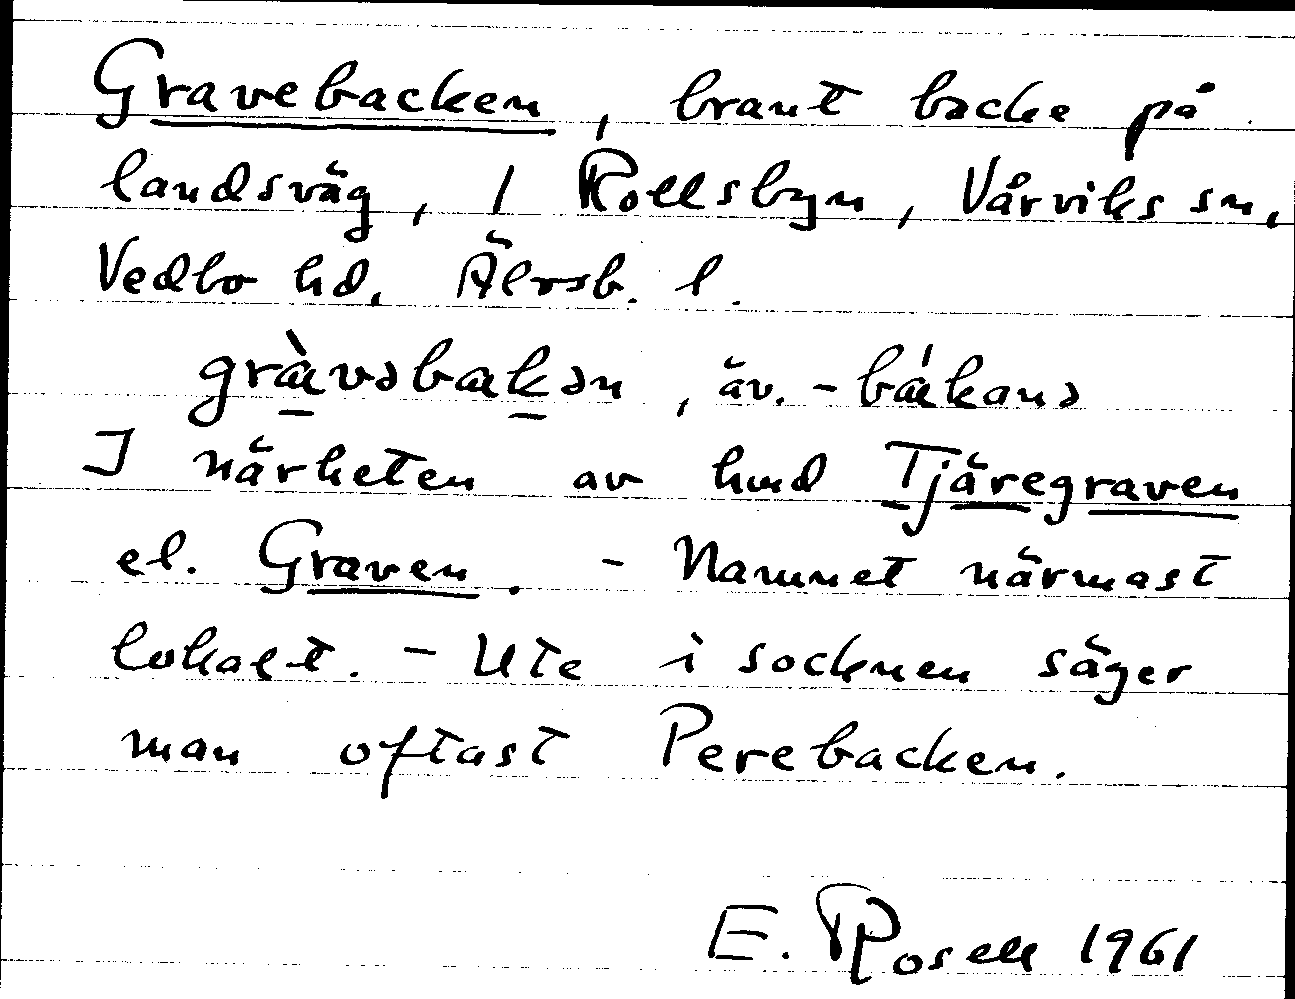 Gravebacken, brant backe på
landsväg, 1 Rollsbyn, Vårviks sn,
Vedbo hd, Älvsb. l.
gràvəbakən, äv. -bákanə
I närheten av hmd Tjäregraven
el. Graven. - Namnet närmast
lokalt. - Ute i socknen säger
man oftast Perebacken.
E. Rosell 1961